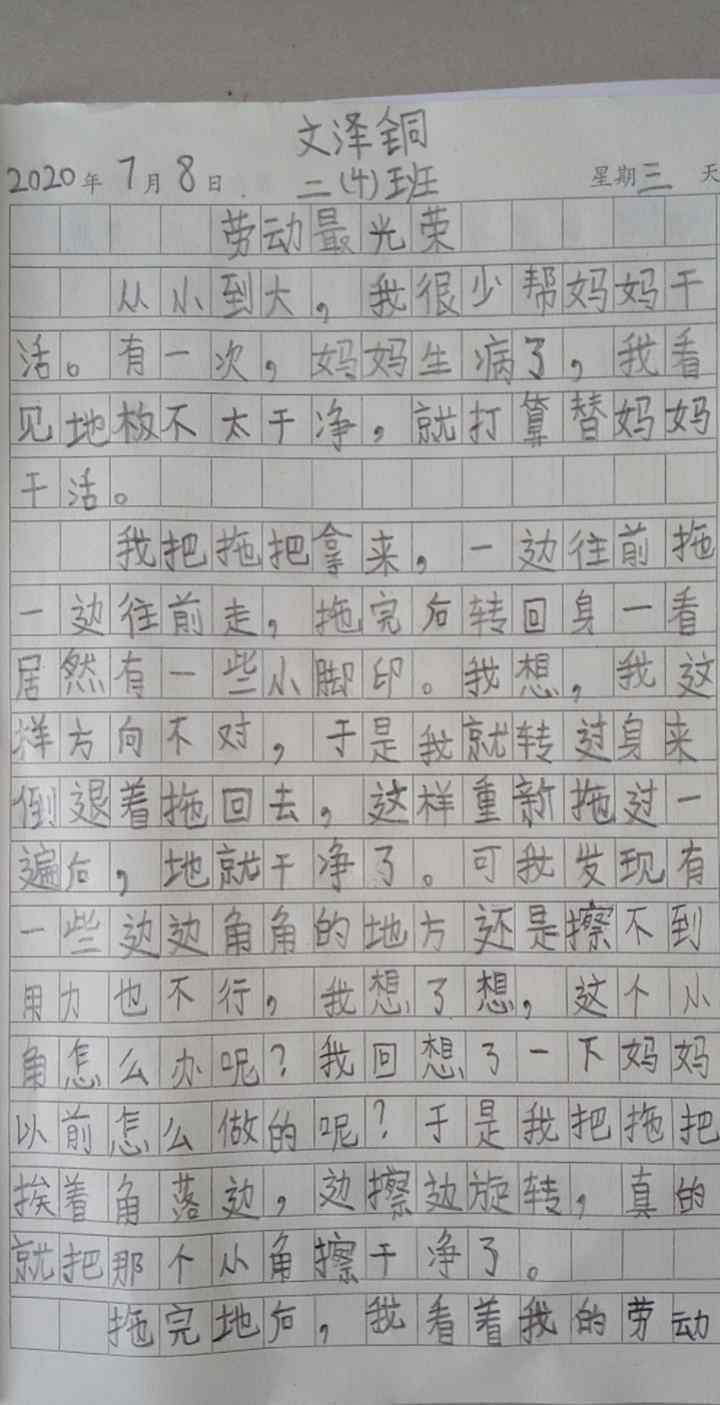 文泽铜
2020年7月8日. 二(4)班 星期三 天
劳动最光荣
从小到大，我很少帮妈妈干
活。有一次，妈妈生病了，我看
见地板不太干净，就打算替妈妈
干活。
我把拖把拿来，一边往前拖
一边往前走，拖完后转回身一看
居然有一些小脚印。我想，我这
样方向不对，于是我就转过身来
倒退着拖回去，这样重新拖过一
遍后，地就干净了。可我发现有
一些边边角角的地方还是擦不到
用力也不行，我想了想，这个小
角怎么办呢？我回想了一下妈妈
以前怎么做的呢？于是我把拖把
挨着角落边，边擦边旋转，真的
就把那个小角擦干净了。
拖完地后，我看着我的劳动